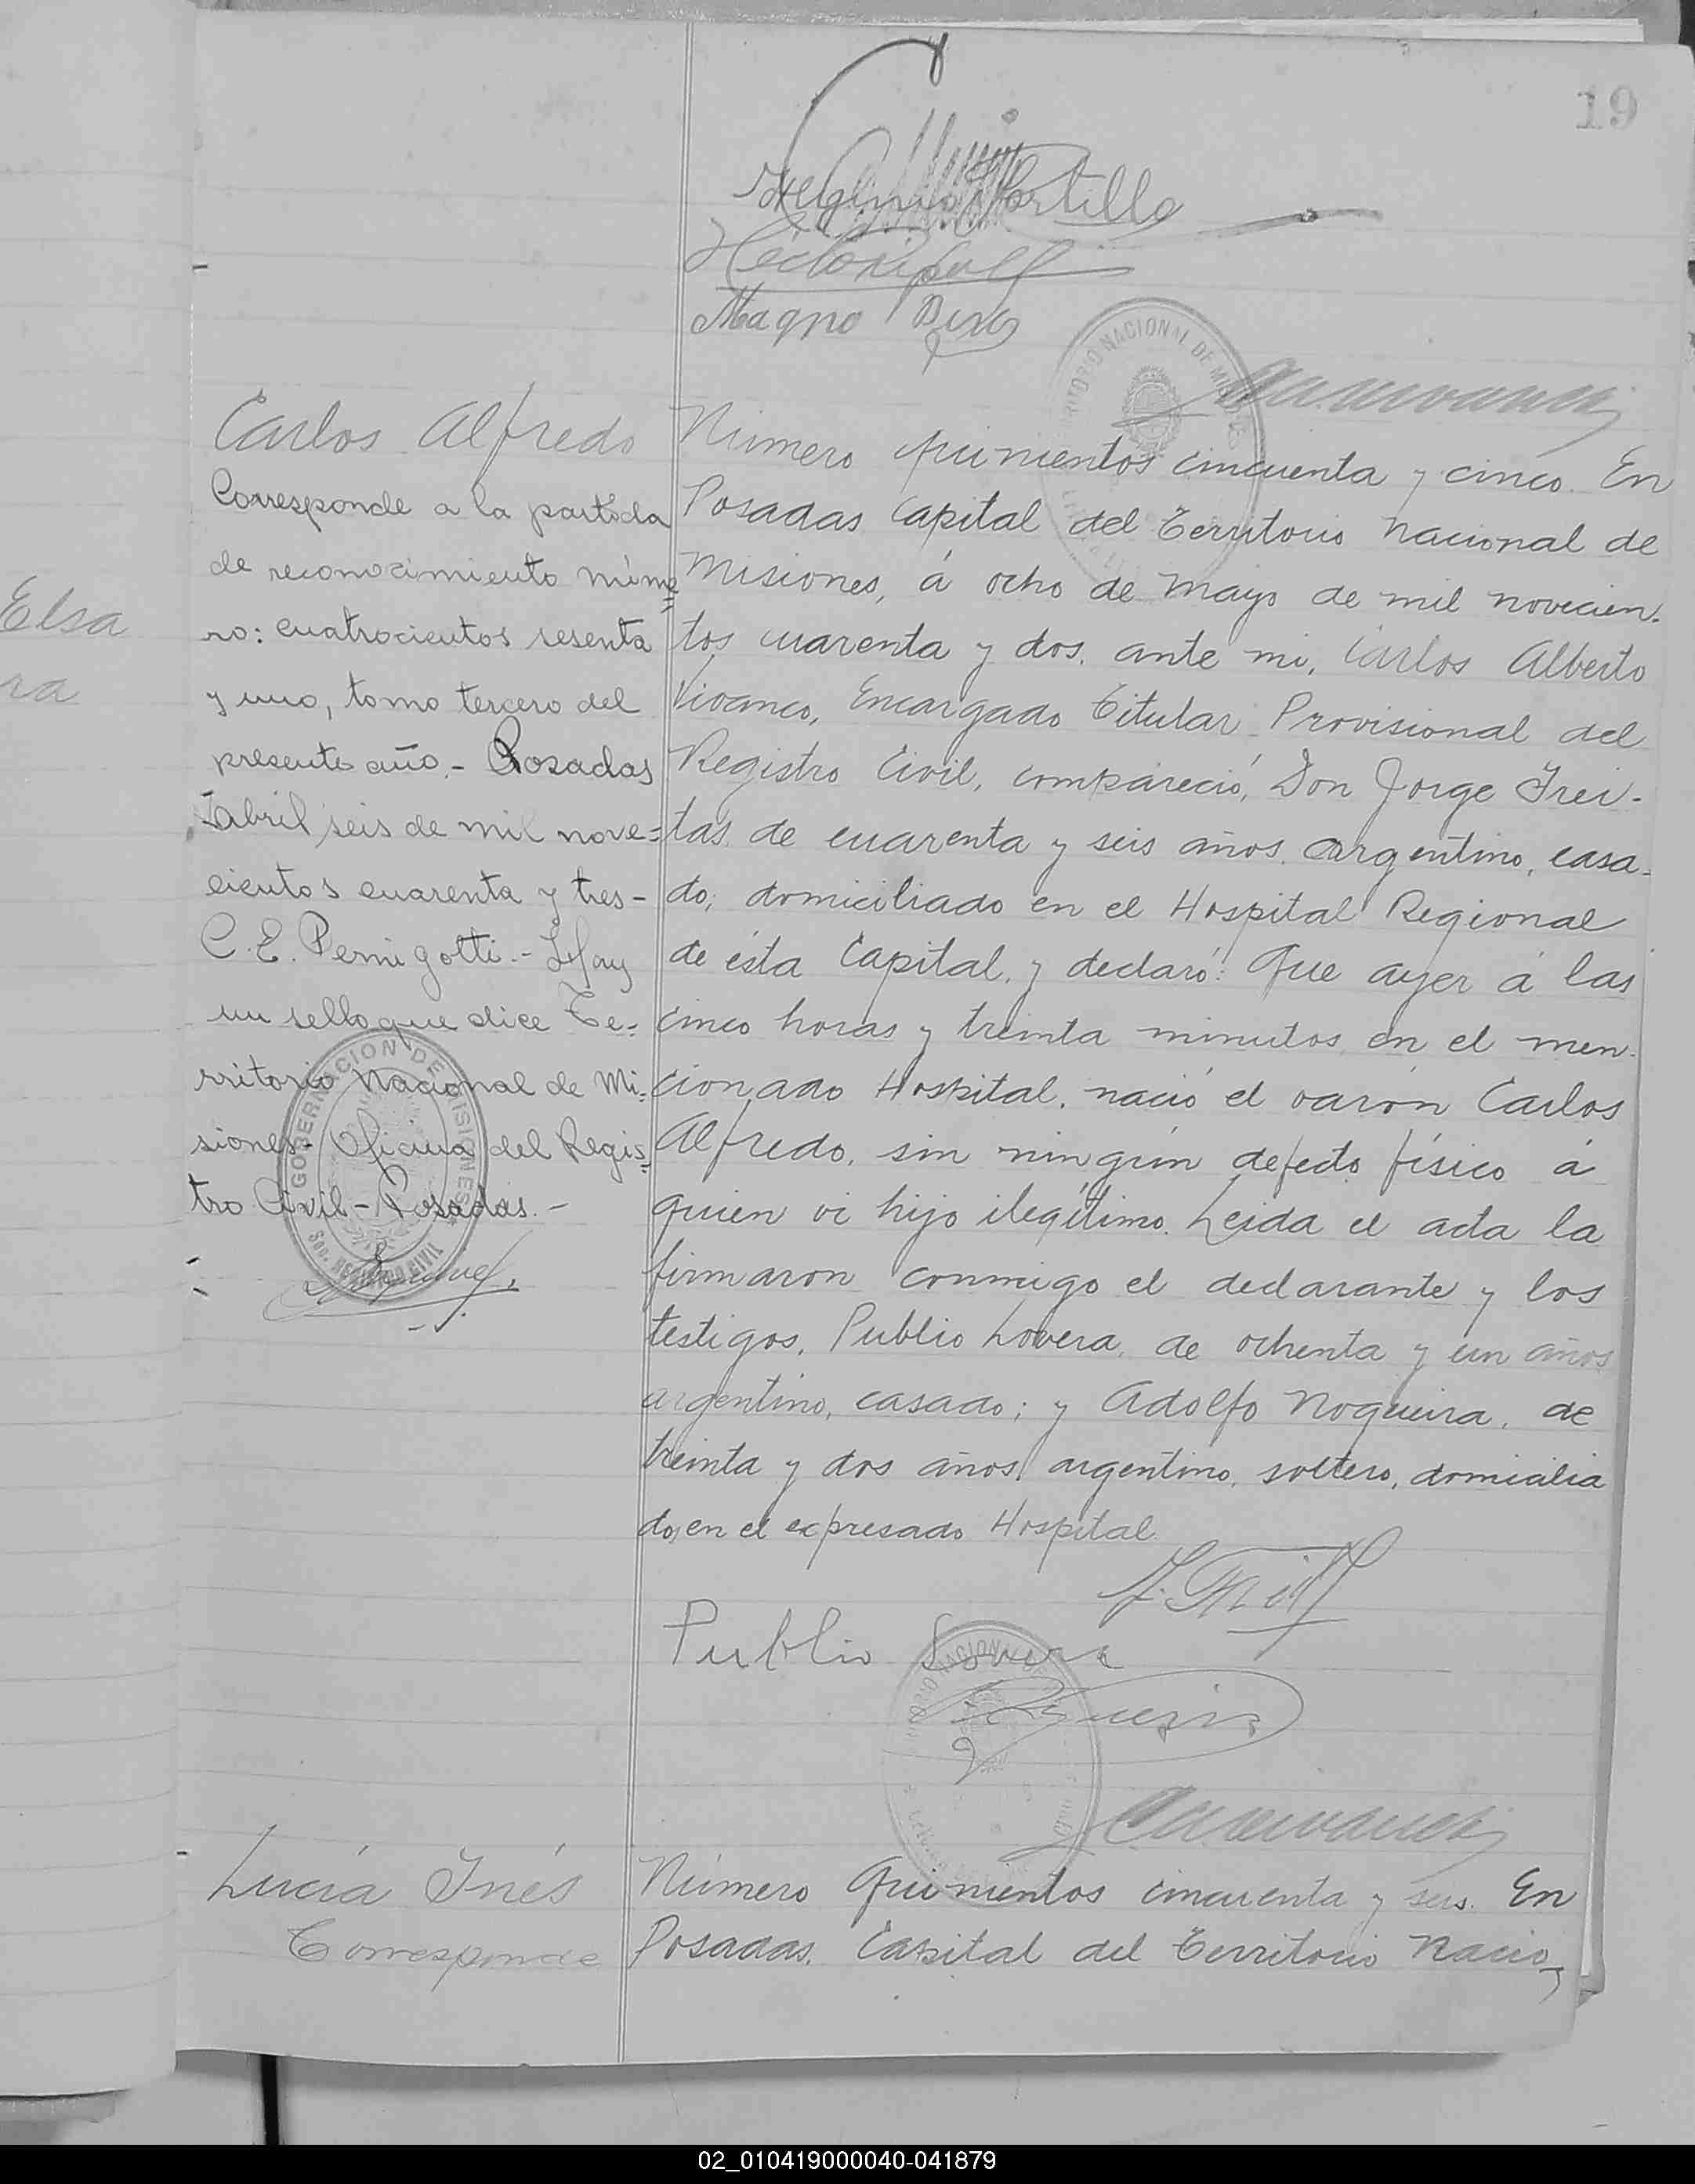 19
Higinio Portillo
Magno
Elsa
ra
Carlos Alfredo
Corresponde a la partida
de reconocimiento núme=
ro: cuatrocientos sesenta
y uno, tomo tercero del
presente año.- Posadas
Abril seis de mil nove=
cientos cuarenta y tres-
C. E. Pernigotti.- Hay
un sello que dice Te=
rritorio Nacional de Mi=
siones- Oficina del Regis=
tro Civil- Posadas.-
GOBERNACION DE MISIONES
Sec. REGISTRO CIVIL
TERRITORIO NACIONAL DE MISIONES
Número quinientos cincuenta y cinco. En
Posadas Capital del Territorio Nacional de
Misiones, á ocho de Mayo de mil novecien-
tos cuarenta y dos, ante mi, Carlos Alberto
Vivanco, Encargado Titular Provisional del
Registro Civil, compareció, Don Jorge Frei-
tas de cuarenta y seis años, argentino, casa-
do; domiciliado en el Hospital Regional
de ésta Capital, y declaró: Que ayer á las
cinco horas y treinta minutos, en el men-
cionado Hospital, nació el varón Carlos
Alfredo, sin ningún defecto físico á
quien vi hijo ilegítimo. Leida el acta la
firmaron conmigo el declarante y los
testigos, Publio Lovera, de ochenta y un años
argentino, casado; y Adolfo Nogueira, de
treinta y dos años, argentino, soltero, domicilia
do, en el expresado Hospital.
Publio Lovera
Lucía Inés
Corresponde
Número Quinientos cincuenta y seis. En
Posadas, Capital del Territorio Nacio-
02_010419000040-041879